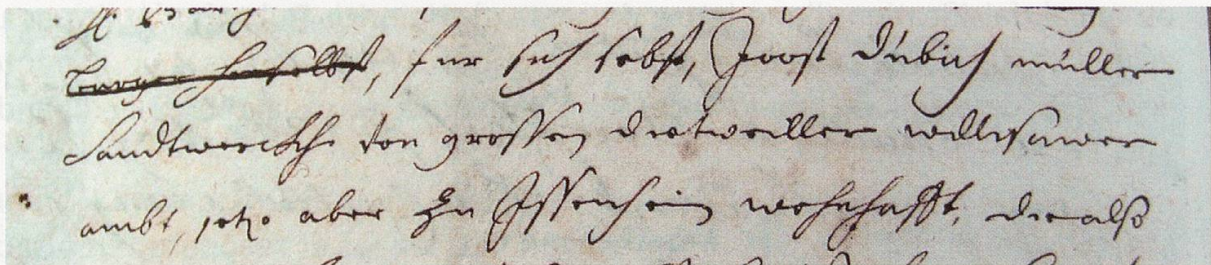 burger hieselbst, fur sich selbst, Joost Dübich müller
handtwerckhs von grossen dietweiller willisawer
ambt, jetzo aber zu Issenheim wohnhafft, die also